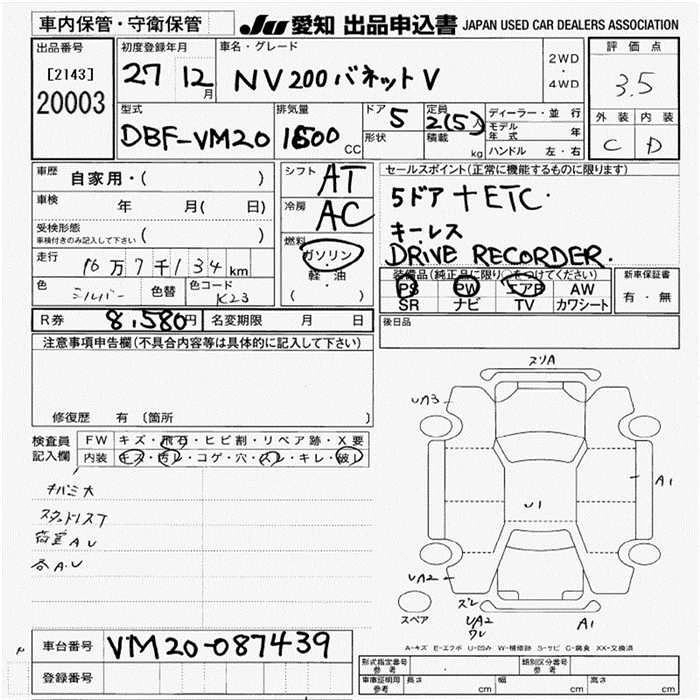 車内保管・守衛保管
JU 愛知 出品申込書 JAPAN USED CAR DEALERS ASSOCIATION
出品番号
[2143]
20003
初度登録年月
27 12月
車名・グレード
NV200バネットV
2WD
・
4WD
評価点
3.5
外装 内装
C D
型式
DBF-VM20
排気量
1600 CC
ドア 5
形状
定員 2(5)人
積載 kg
ディーラー・並行
モデル年式 年
ハンドル 左・右
車歴 自家用・( )
車検 年 月( 日)
受検形態
車検付きのみ記入して下さい ( )
走行 16万7千134km
色 シルバー 色替 色コード K23
シフト AT
冷房 AC
燃料
ガソリン
・
軽油
( )
セールスポイント(正常に機能するものに限ります)
5ドア+ETC.
キーレス
DRIVE RECORDER.
装備品(純正品に限り○をつけてください)
PS PW エアB AW
SR ナビ TV カワシート
新車保証書
有・無
R券 8,580円 名変期限 月 日
後日品
注意事項申告欄(不具合内容等は具体的に記入して下さい)
修復歴 有 〔箇所 〕
検査員記入欄
FW キズ・飛石・ヒビ割・リペア跡・X要
内装 キズ・汚レ・コゲ・穴・スレ・キレ・破レ
キバミ大
スタッドレスT
荷室AU
各A.U
スリA
UA3
A1
U1
UA2
スレ
UA2
ワレ
A1
スペア
A-キズ E-エクボ U-凹み W-補修跡 S-サビ C-腐食 XX-交換済
車台番号 VM20-087439
登録番号
型式指定番号 参考
類別区分番号 参考
車庫証明用 参考 長さ cm 幅 cm 高さ cm